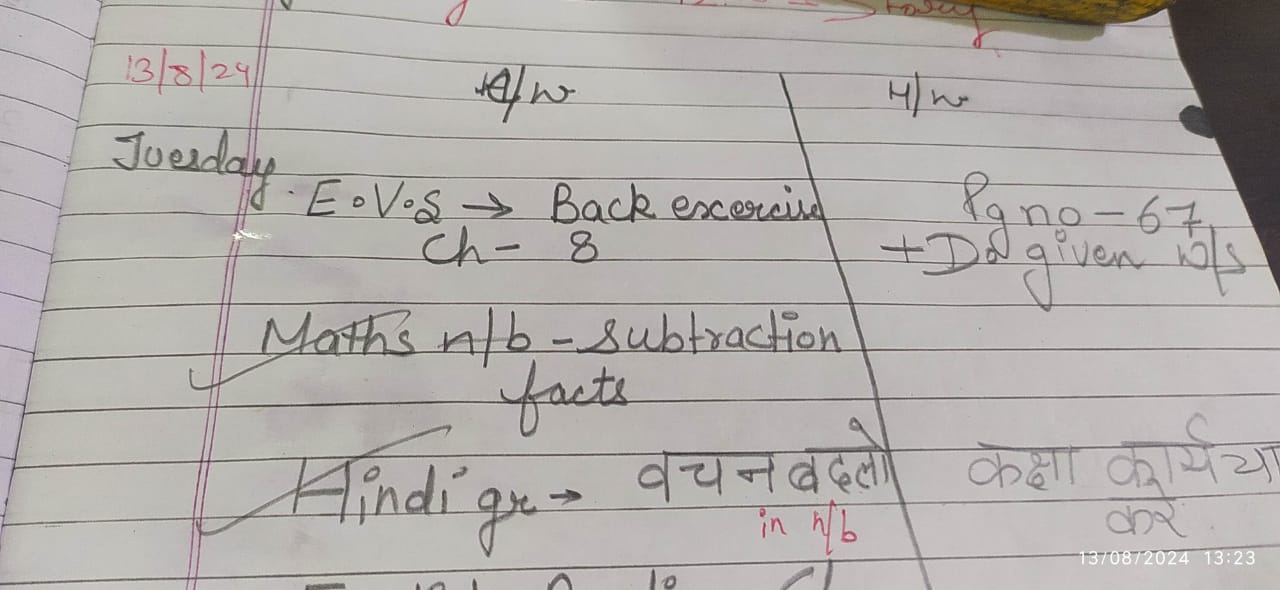 Story
13/8/24
C/w
H/w
Tuesday
E.V.S → Back excercise
Ch - 8
Pg no - 67
+ Do given w/s
Maths n/b - subtraction
facts
Hindi gr → वचन बदलो
in n/b
कक्षा कार्य या
करें
13/08/2024 13:23